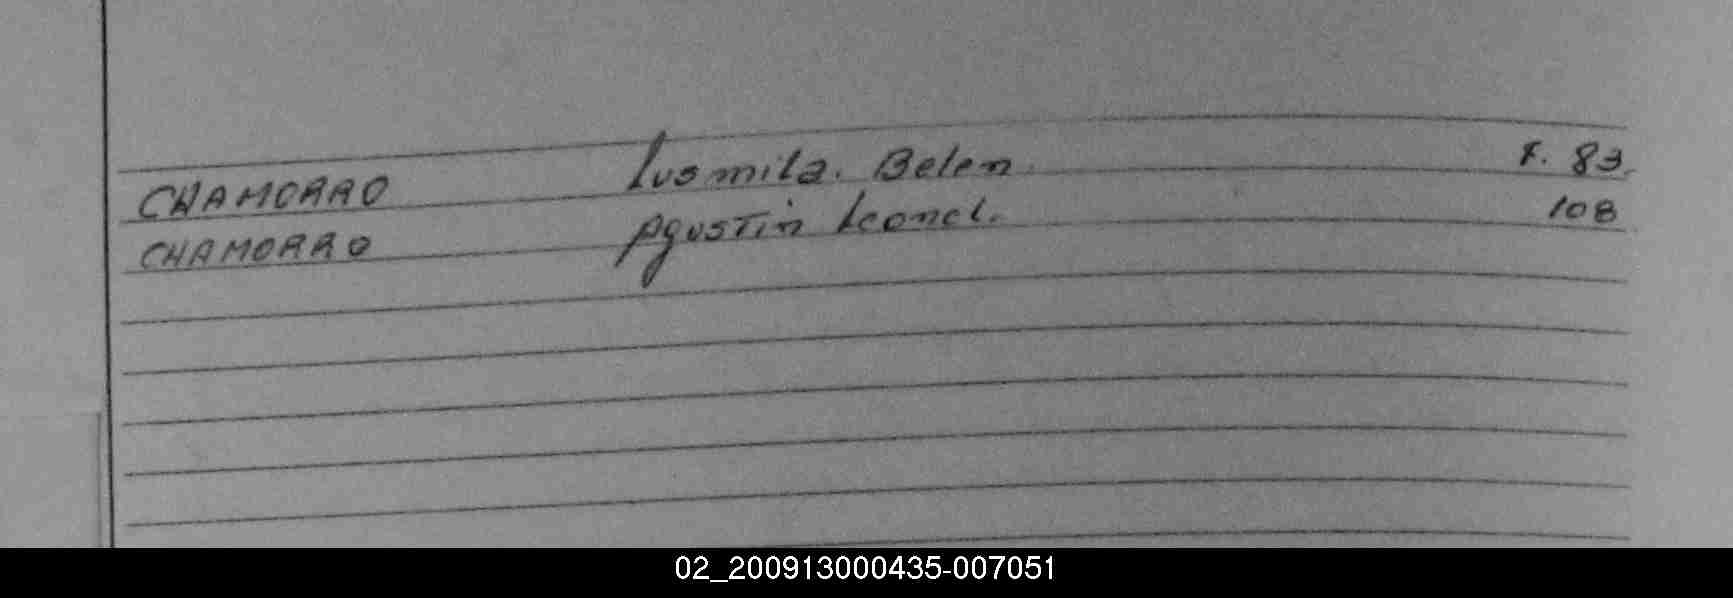 CHAMORRO Lusmila. Belen. F. 83.
CHAMORRO Agustin Leonel. 108
02_200913000435-007051